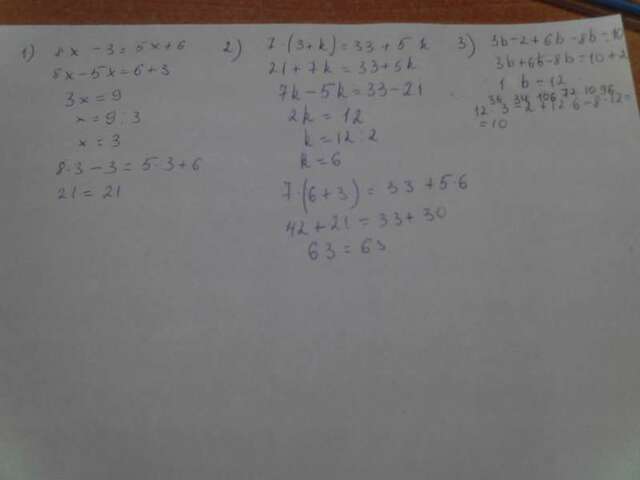 1) 8x - 3 = 5x + 6
8x - 5x = 6 + 3
3x = 9
x = 9 : 3
x = 3
8·3 - 3 = 5·3 + 6
21 = 21
2) 7·(3+k) = 33 + 5k
21 + 7k = 33 + 5k
7k - 5k = 33 - 21
2k = 12
k = 12 : 2
k = 6
7·(6+3) = 33 + 5·6
42 + 21 = 33 + 30
63 = 63
3) 3b - 2 + 6b - 8b = 10
3b + 6b - 8b = 10 + 2
1 b = 12
36 34 106 72 10 96
12·3 - 2 + 12·6 - 8·12 =
= 10